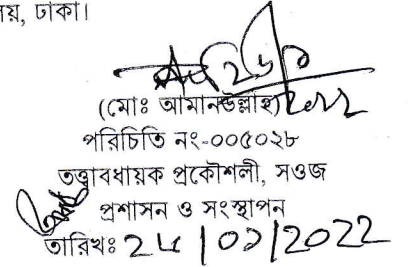 য়, ঢাকা।
(মোঃ আমানউল্লাহ)
পরিচিতি নং-০০৫০২৮
তত্ত্বাবধায়ক প্রকৌশলী, সওজ
প্রশাসন ও সংস্থাপন
তারিখঃ